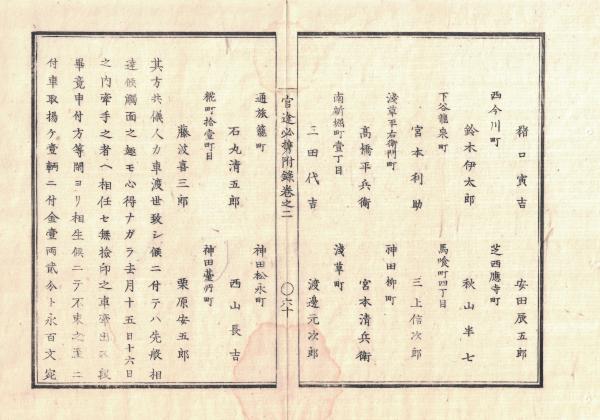 猪口寅吉　安田辰五郎
西今川町　芝西應寺町
鈴木伊太郎　秋山半七
下谷龍泉町　馬喰町四丁目
宮本利助　三上信次郎
淺草平右衛門町　神田柳町
髙橋平兵衛　宮本清兵衛
南新堀町壹丁目　淺草町
三田代吉　渡邊元次郎
官途必携附錄卷之二　〇六十
通旅籠町　神田松永町
石丸清五郎　西山長吉
糀町拾壹町目　神田臺所町
藤波喜三郎　栗原安五郎
其方共儀人力車渡世致シ候ニ付テハ先般相
達候觸面之趣モ心得ナガラ去月十五日十六日
之内牽手之者ヘ相任セ無撿印之車牽出ス段
畢竟申付方等閑ヨリ相生候ニテ不束之至ニ
付車取揚ケ壹輌ニ付金壹兩貳分ト永百文宛